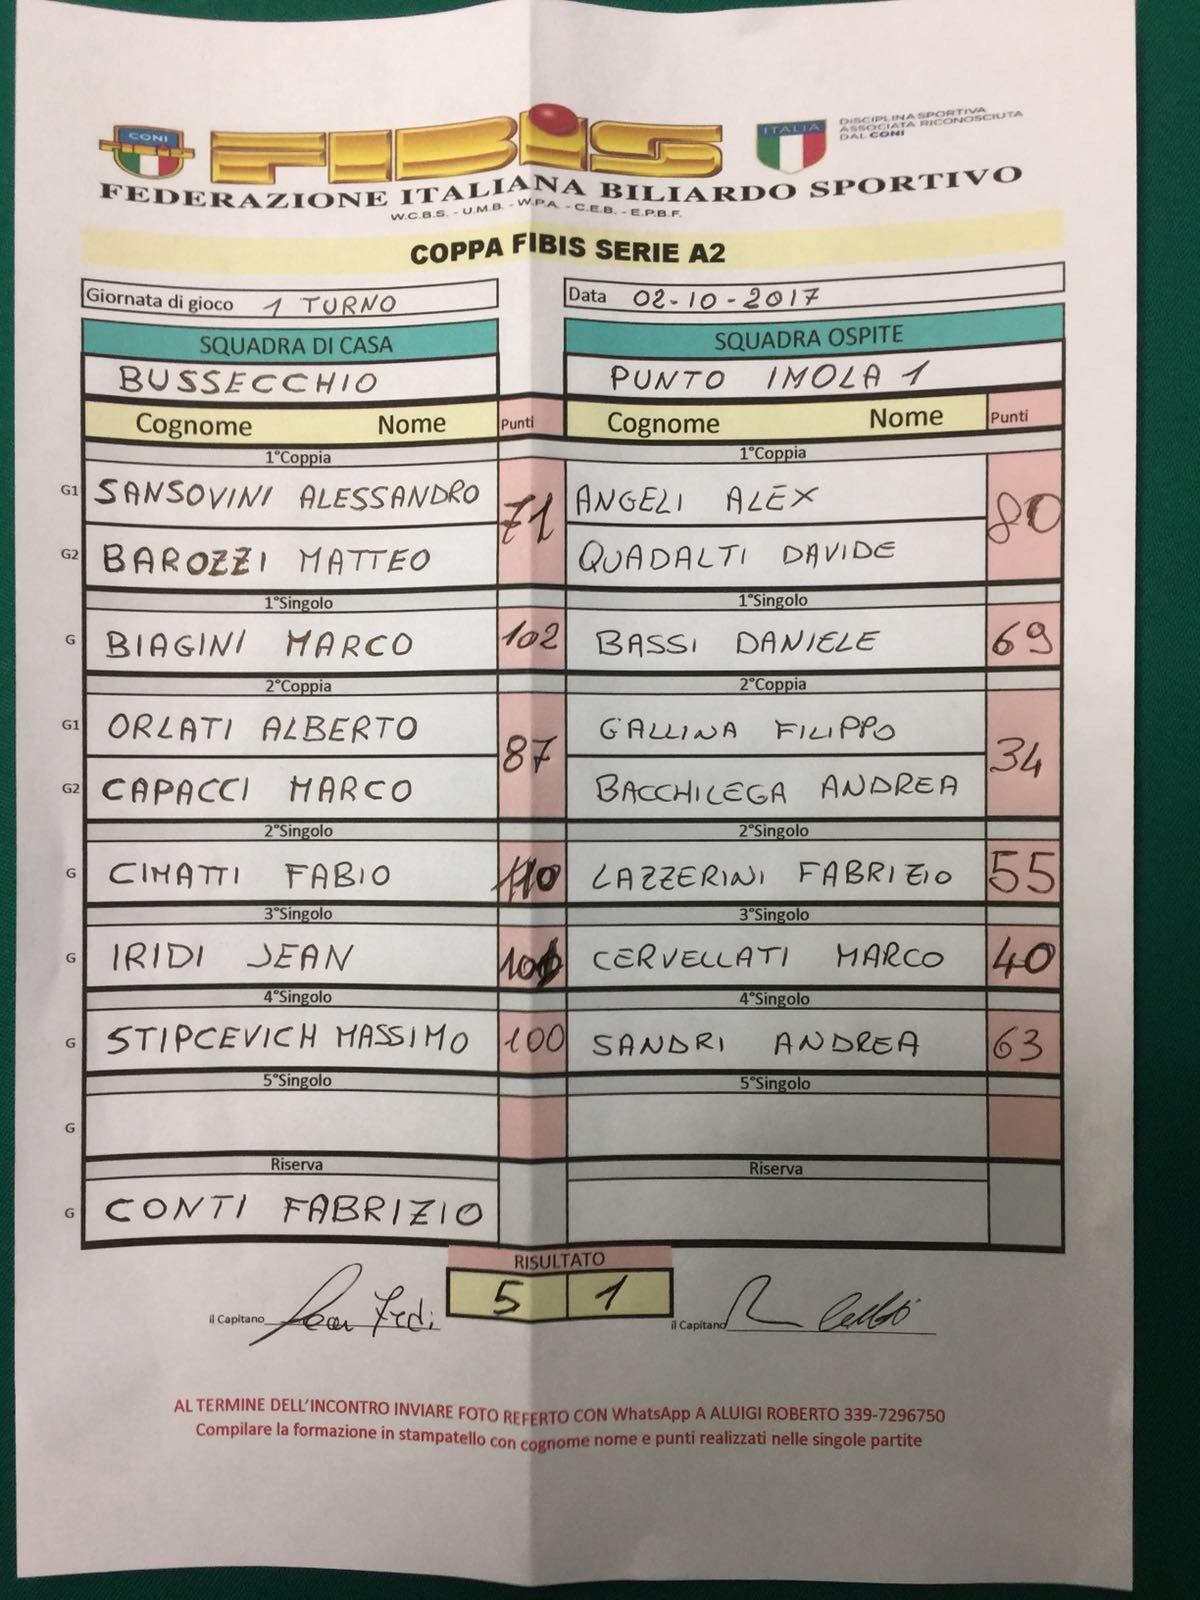 CONI
FIBIS
ITALIA
DISCIPLINA SPORTIVA
ASSOCIATA RICONOSCIUTA
DAL CONI
FEDERAZIONE ITALIANA BILIARDO SPORTIVO
W.C.B.S. - U.M.B. - W.P.A. - C.E.B. - E.P.B.F.
COPPA FIBIS SERIE A2
Giornata di gioco 1 TURNO Data 02-10-2017
SQUADRA DI CASA SQUADRA OSPITE
BUSSECCHIO PUNTO IMOLA 1
Cognome Nome Punti Cognome Nome Punti
1°Coppia 1°Coppia
G1 SANSOVINI ALESSANDRO 71 ANGELI ALEX 80
G2 BAROZZI MATTEO QUADALTI DAVIDE
1°Singolo 1°Singolo
G BIAGINI MARCO 102 BASSI DANIELE 69
2°Coppia 2°Coppia
G1 ORLATI ALBERTO 87 GALLINA FILIPPO 34
G2 CAPACCI MARCO BACCHILEGA ANDREA
2°Singolo 2°Singolo
G CIMATTI FABIO 110 LAZZERINI FABRIZIO 55
3°Singolo 3°Singolo
G IRIDI JEAN CERVELLATI MARCO 40
4°Singolo 4°Singolo
G STIPCEVICH MASSIMO 100 SANDRI ANDREA 63
5°Singolo 5°Singolo
G
Riserva Riserva
G CONTI FABRIZIO
RISULTATO
5 1
il Capitano il Capitano
AL TERMINE DELL'INCONTRO INVIARE FOTO REFERTO CON WhatsApp A ALUIGI ROBERTO 339-7296750
Compilare la formazione in stampatello con cognome nome e punti realizzati nelle singole partite